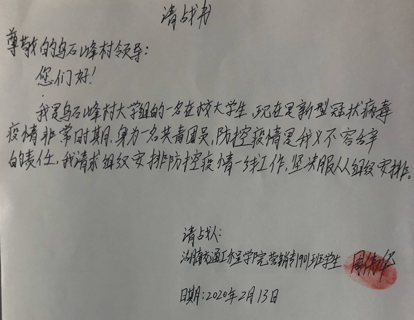 请战书
尊敬的乌石峰村领导：
您们好！
我是乌石峰村大学组的一名在校大学生，现在是新型冠状病毒
疫情非常时期，身为一名共青团员，防控疫情是我义不容辞
的责任，我请求组织安排防控疫情一线工作，坚决服从组织安排。
请战人：
湖南交通工程学院营销专1901班学生
日期：2020年2月13日